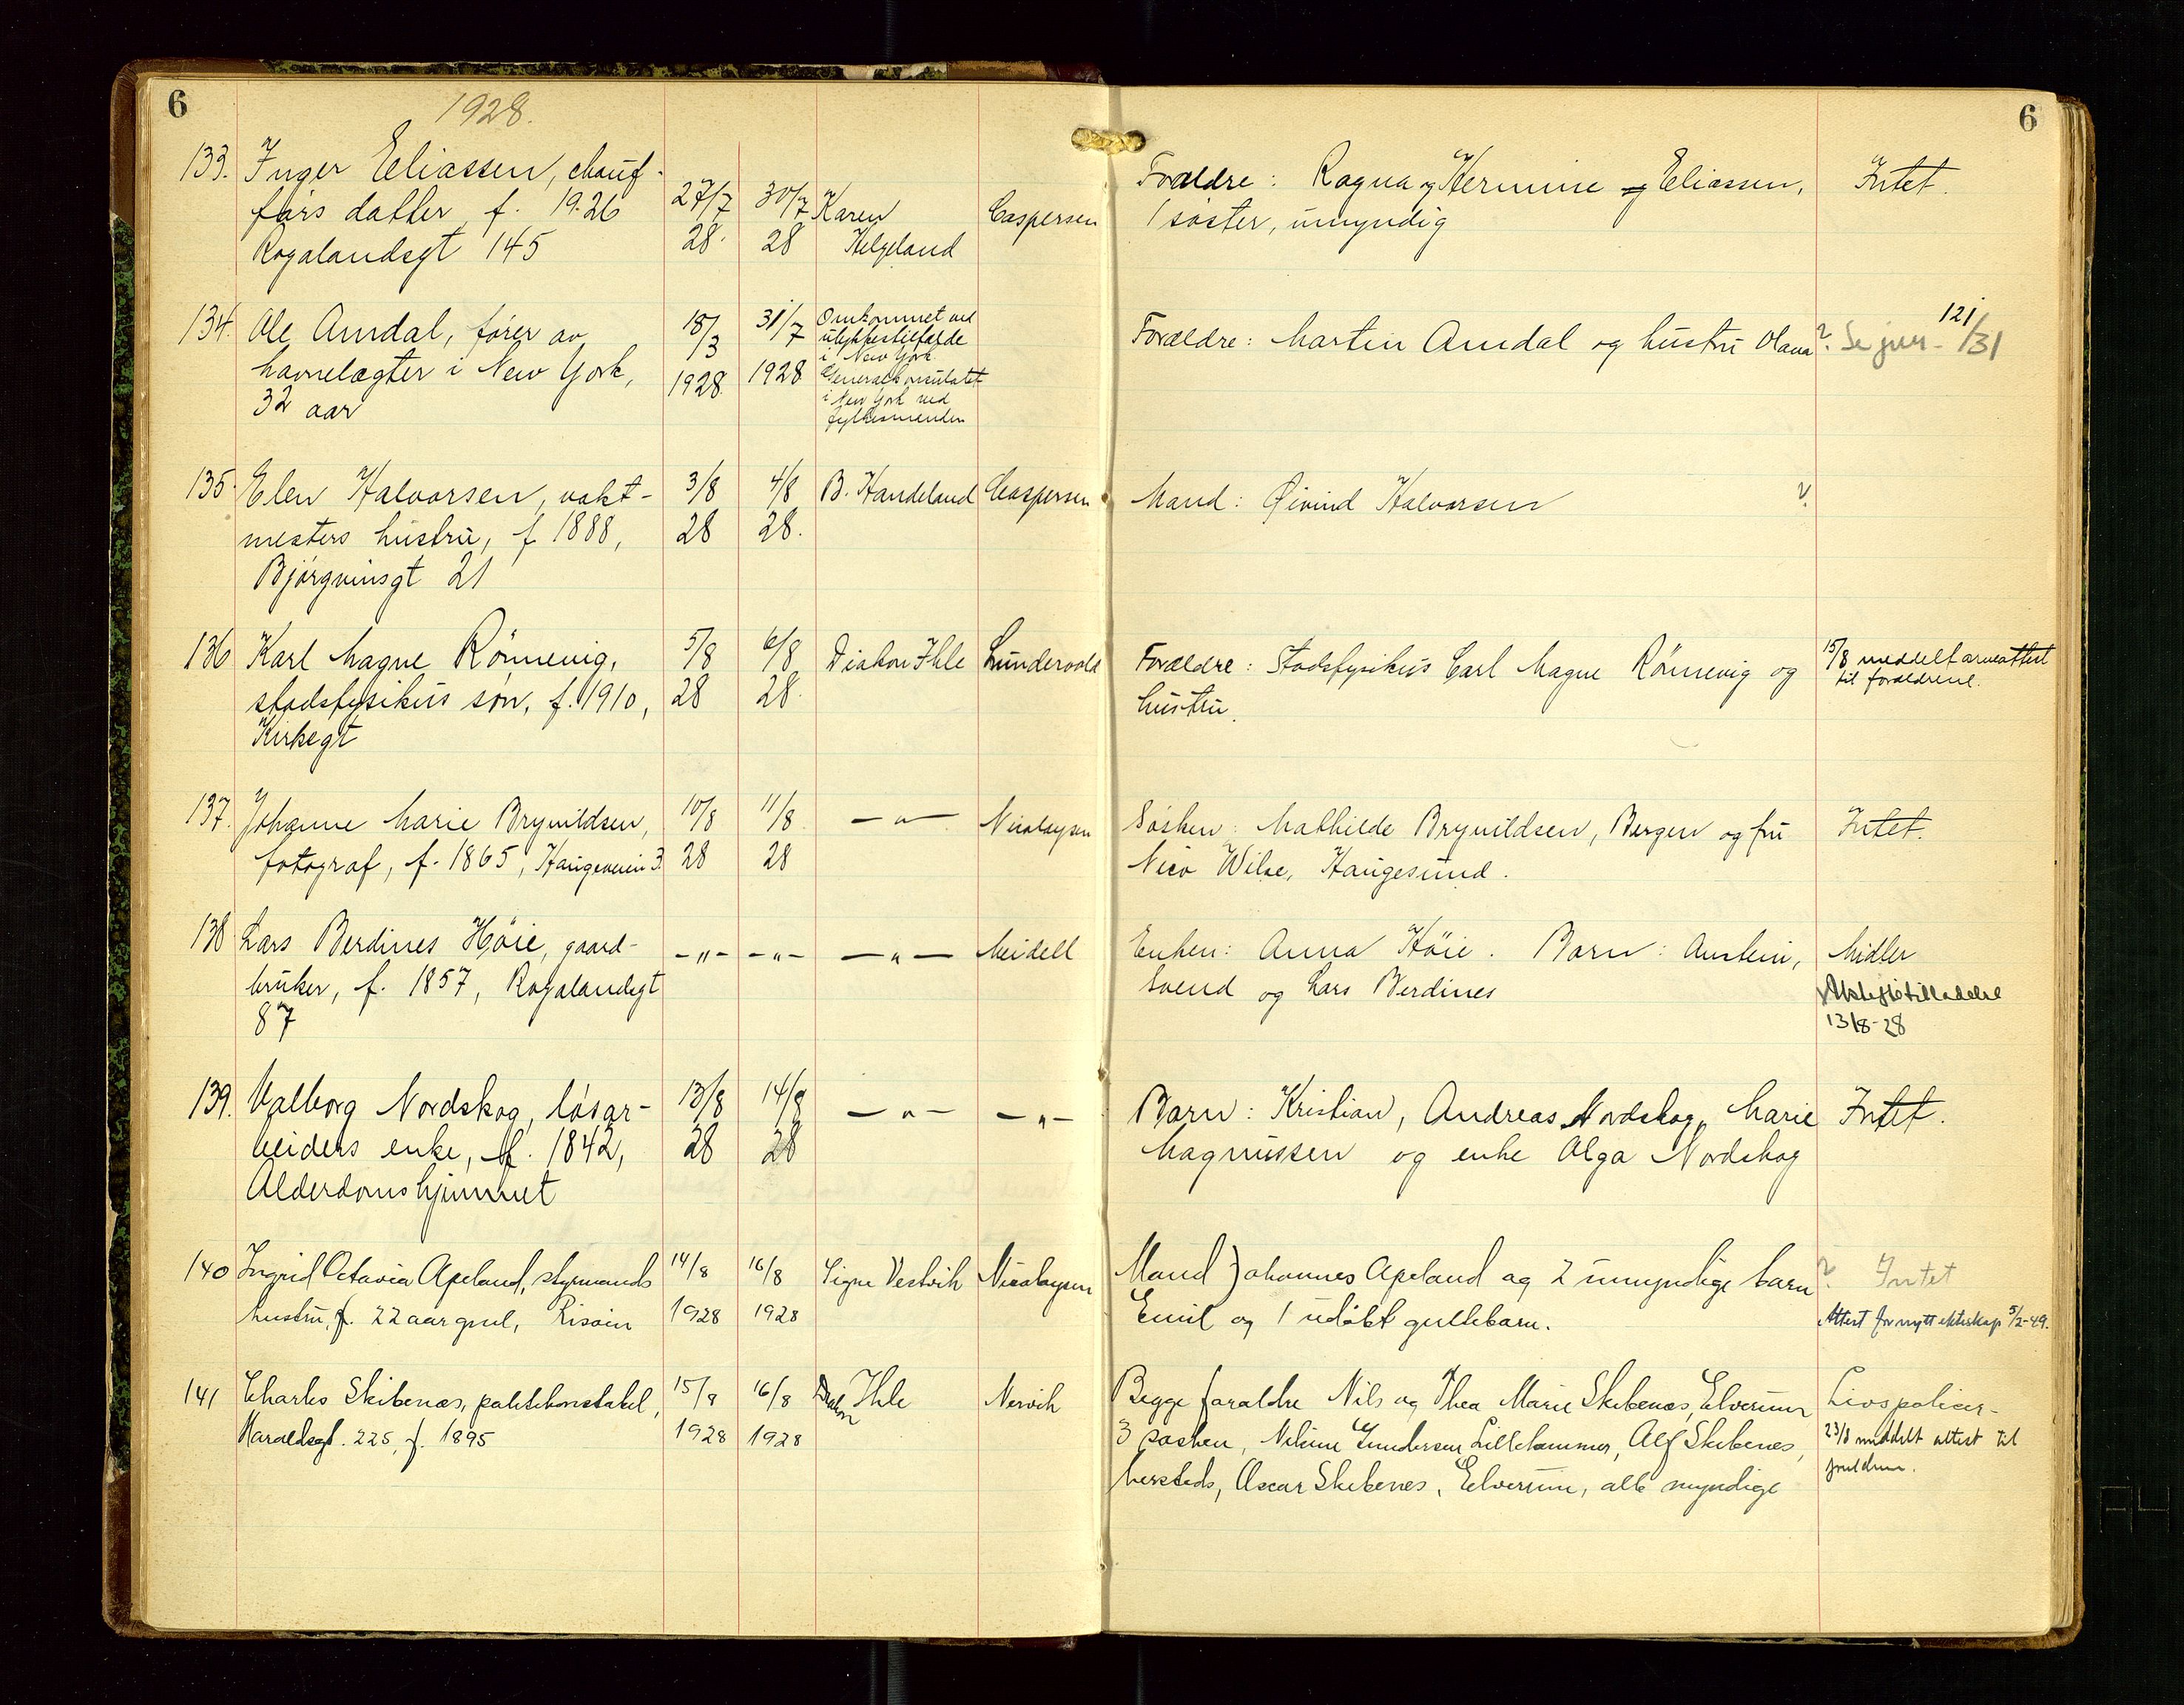 6
1928.
6
133. Inger Eeliassen, chauf-
førs datter, f. 1926
Rogalandsgt 145
27/7 28.
30/7 28
Karen
Helgeland
Caspersen
Forældre: Ragna og Hermine Eeliassen,
1 søster, umyndig
Intet.
134. Ole Amdal, fører av
havnelægter i New York,
32 aar
18/3 1928.
31/7 1928
Omkommet ved
ulykkestilfælde
i New York
Generalkonsulatet
i New York ved
fylkesmanden
Forældre: Martin Amdal og hustru Olana
? Se jur. 121/31
135. Elen Halvorsen, vakt-
mesters hustru, f 1888,
Bjørgvinsgt 21
3/8 28
4/8 28.
B. Handeland
Caspersen
Mand: Øivind Halvorsen
?
136 Karl Magne Rönnevig,
stadsfysikus søn, f. 1910,
Kirkegt
5/8 28
6/8 28.
Diakon Ihle
Lundevold
Forældre: Stadsfysikus Carl Magne Rönnevig og
hustru.
15/8 meddelt arveattest
til forældrene.
137. Johanne Marie Brynildsen,
fotograf, f. 1865, Haugeveien 3.
10/8 28
11/8 28
— " —
Nicolaysen
Søsken: Mathilde Brynildsen, Bergen og fru
Nico Wilse, Haugesund.
Intet.
138 Lars Berdines Höie, gaard-
bruker, f. 1857, Rogalandsgt
87
- " -
- " -
— " —
Meidell
Enken: Anna Höie. Barn: Austein,
Svend og Lars Berdines
Midler
Uskiftetilladelse
13/8-28
139. Valborg Nordskog, løsar-
beiders enke, f. 1842,
Alderdomshjemmet
13/8 28
14/8 28
— " —
— " —
Barn: Kristian, Andreas Nordskog, Marie
Magnussen og enke Olga Nordskog
Intet.
140 Ingrid Octavia Apeland, styrmands
hustru, f. 22 aar gml, Risøin
14/8 1928
16/8 1928
Signe Vestvik
Nicolaysen
Mand Johannes Apeland og 2 umyndige barn
Emil og 1 udøbt guttebarn.
? Intet
Attest for nytt ekteskap 5/2-49.
141 Charles Skibenæs, politikonstabel,
Haraldsgt. 225, f. 1895
15/8 1928
16/8 1928
Diakon Ihle
Nervik
Begge forældre Nils og Thea Marie Skibenæs, Elverum
3 søsken, Gundersen Lillehammer, Alf Skibenes,
hersteds, Oscar Skibenes, Elverum, alle myndige
Livspolicer-
23/8 meddelt attest til
foreldrene.